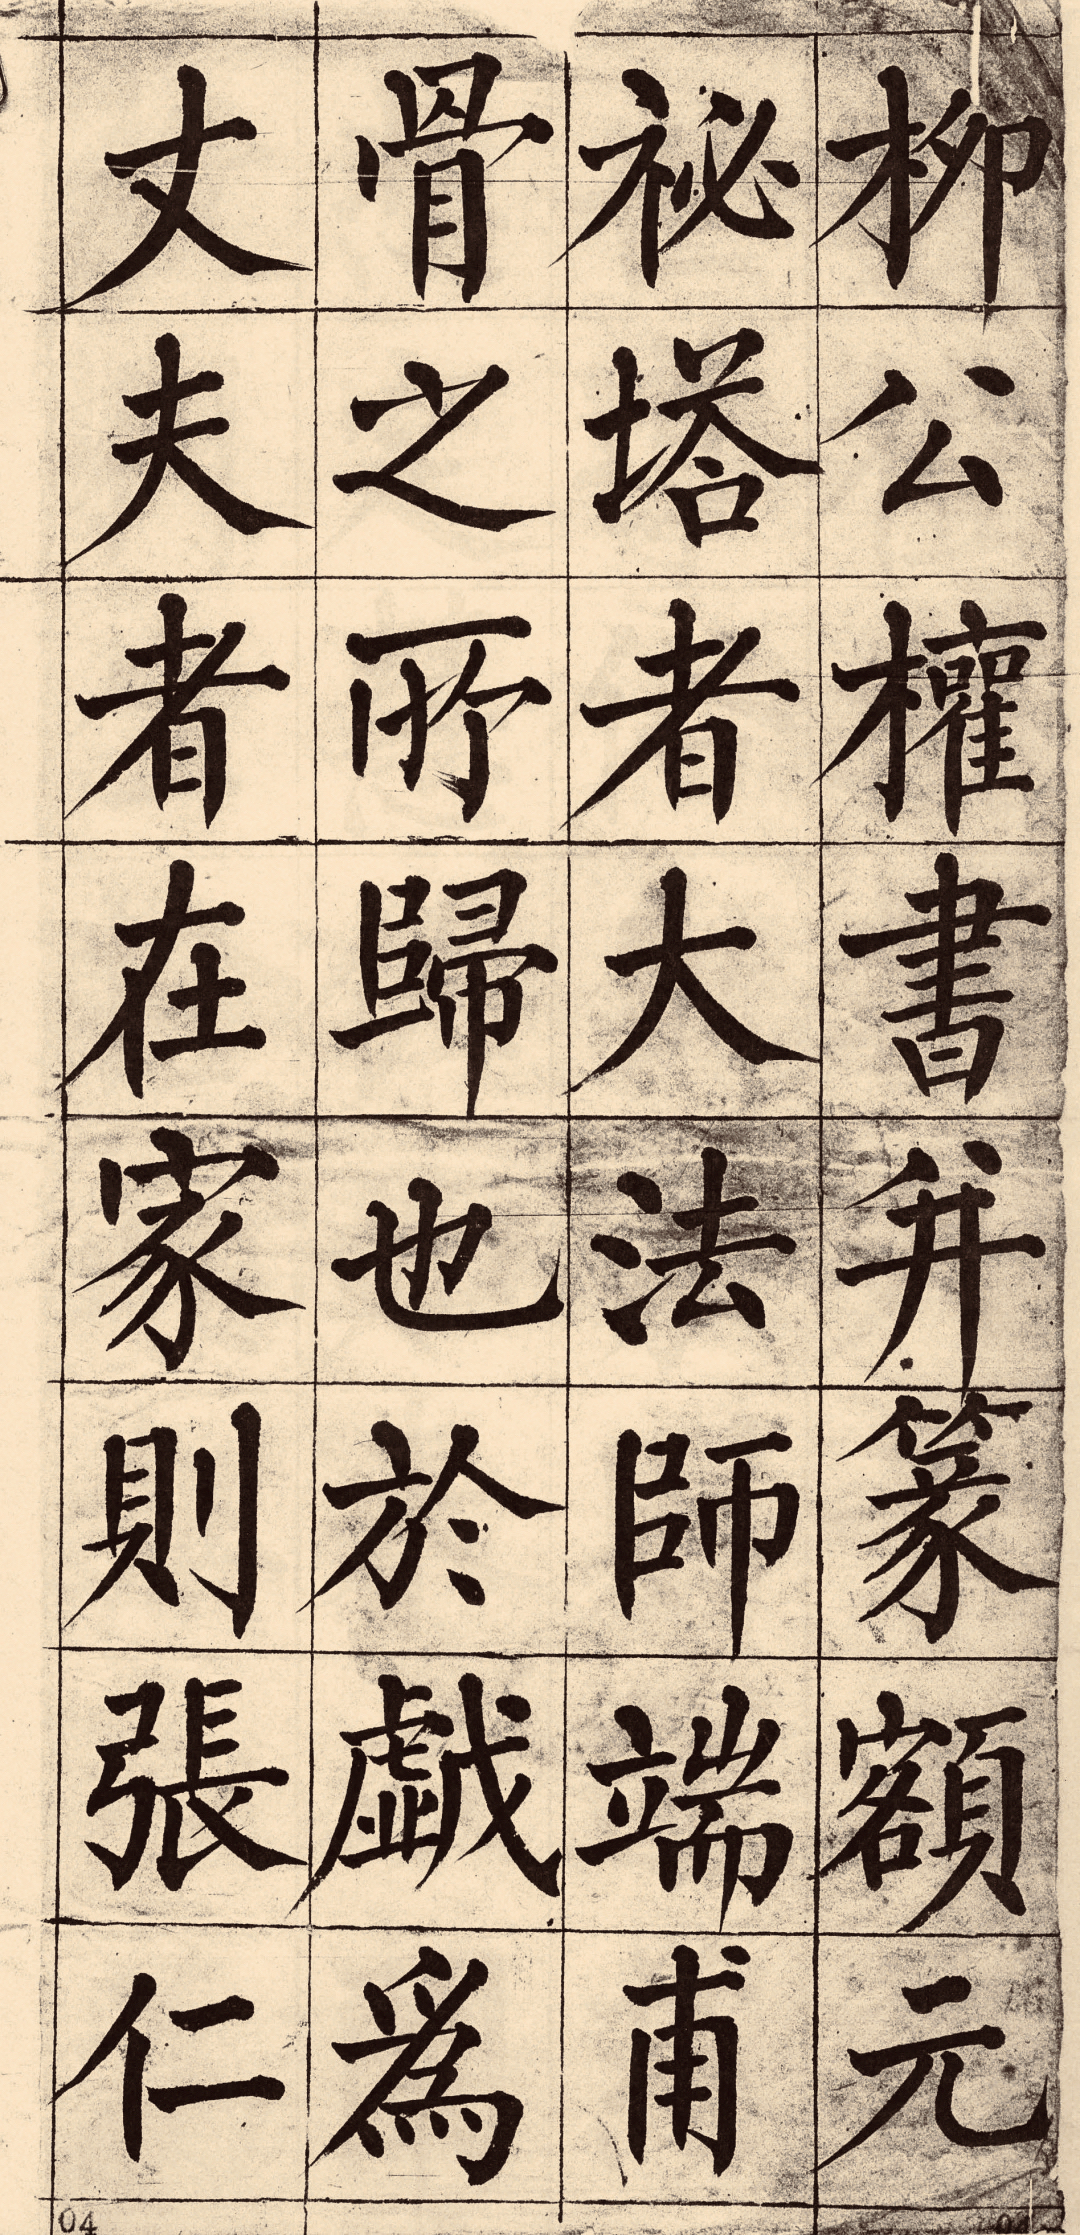 柳公權書并篆額元
祕塔者大法師端甫
骨之所歸也於戲爲
丈夫者在家則張仁
04